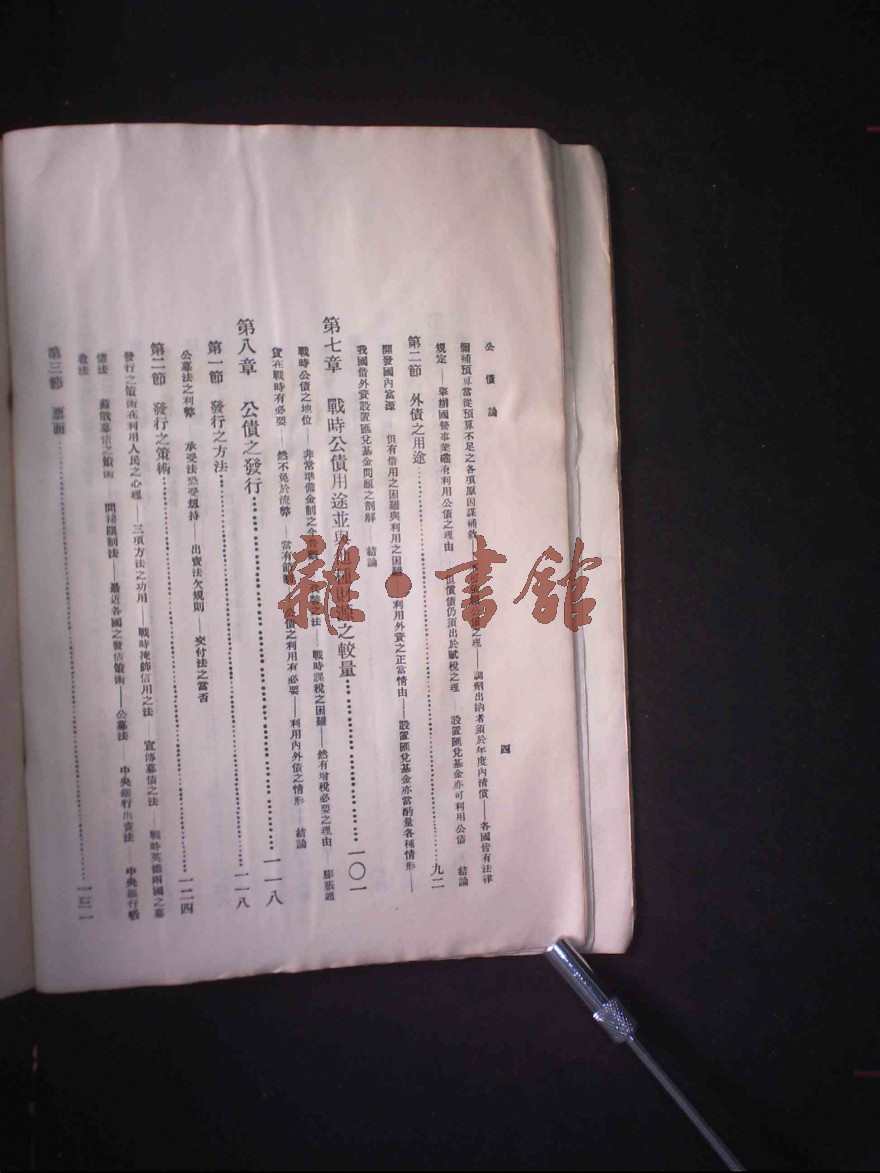 公債論
四
彌補預算當從預算不足之各項原因謀補救——之理——調劑出納者須於年度內清償——各國皆有法律
規定——舉辦國營事業確有利用公債之理由——但償債仍須出於賦稅之理——設置匯兌基金亦可利用公債——結論
第二節 外債之用途……九二
開發國內富源——但有借用之困難與利用之困難——利用外資之正當情由——設置匯兌基金亦當酌量各種情形——
我國借外資設置匯兌基金問題之剖解——結論
第七章 戰時公債用途並與他種財源之較量……一〇一
戰時公債之地位——非常準備金制之——之法——戰時課稅之困難——然有增稅必要之理由——膨脹通
貨在戰時有必要——然不免於流弊——當有節制——公債之利用有必要——利用內外債之情形——結論
第八章 公債之發行……一一八
第一節 發行之方法……一一八
公募法之利弊——承受法恐受挾持——出賣法欠規則——交付法之當否
第二節 發行之策術……一二四
發行之策術在利用人民之心理——三項方法之功用——戰時掩飾信用之法——宣傳募債之法——戰時英德兩國之募
債法——蘇俄募債之策術——間接強制法——最近各國之發債策術——公募法——中央銀行出賣法——中央銀行吸
收法
第三節 票面……一三一
雜·書館